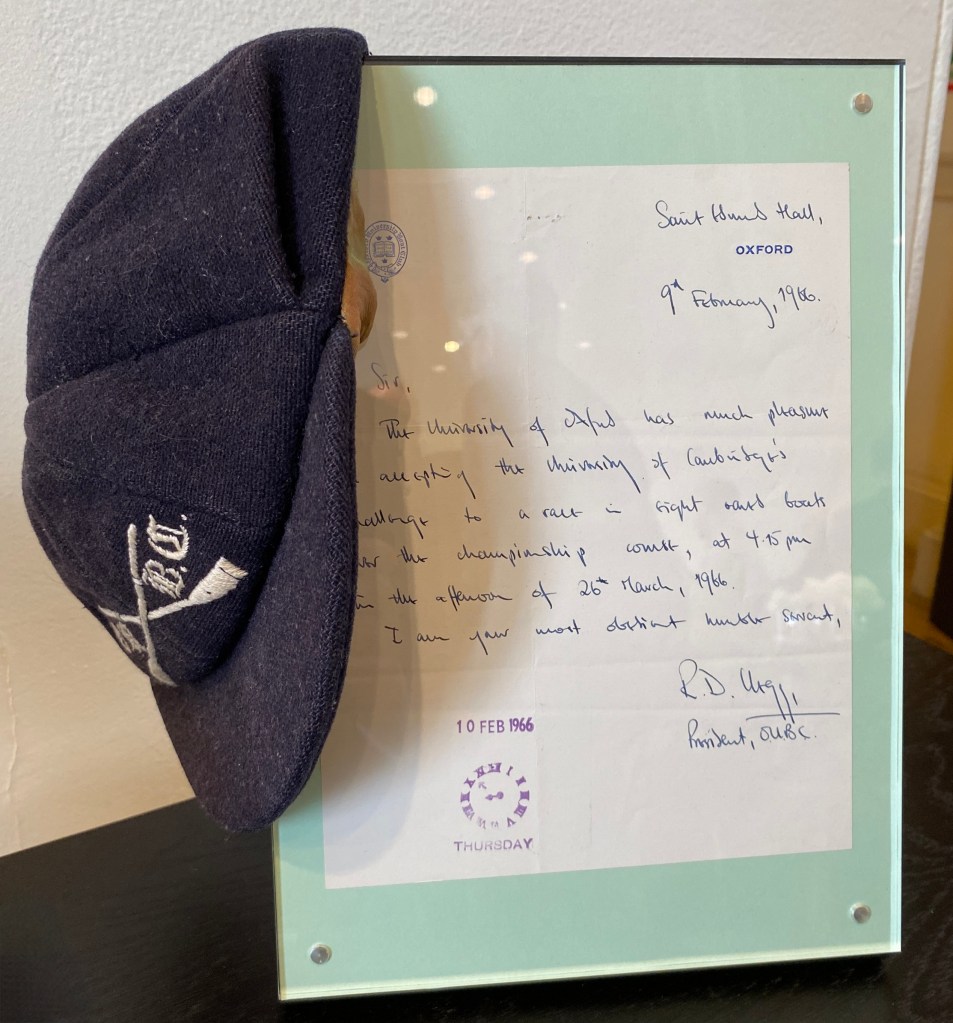 Saint Edmund Hall,
OXFORD
9th February, 1966.
Sir,
The University of Oxford has much pleasure
accepting the University of Cambridge's
hallenge to a race in eight oared boats
over the championship course, at 4.15 pm
in the afternoon of 26th March, 1966.
I am your most obedient humble servant,
R.D.
President, O.U.B.C.
10 FEB 1966
THURSDAY
B.C.